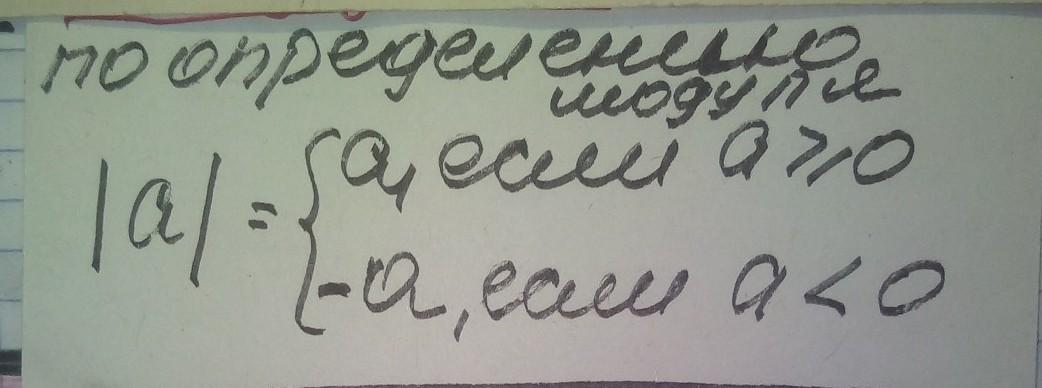 по определению
модуля
|a| = { a, если a ⩾ 0
-a, если a < 0